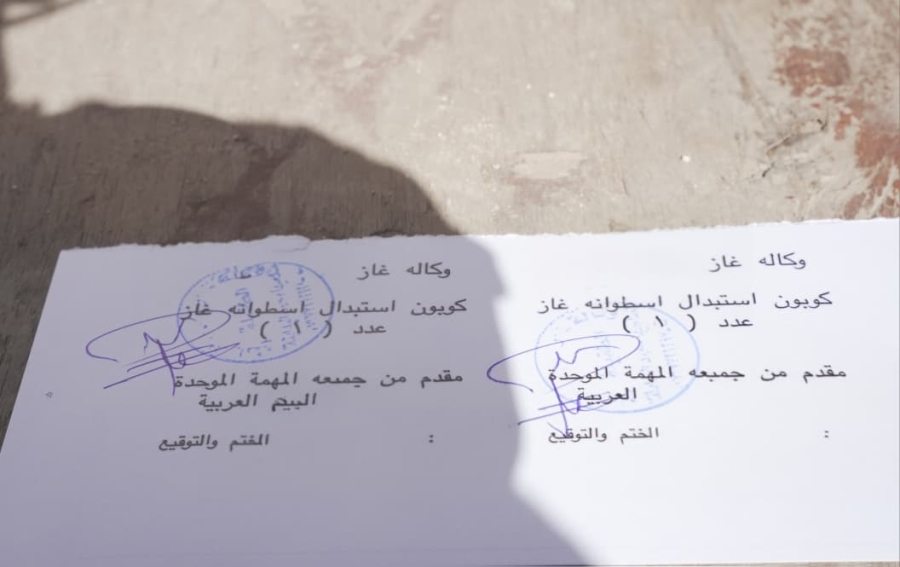 وكاله غاز
كوبون استبدال اسطوانه غاز
عدد ( ١ )
مقدم من جمبعه المهمة الموحدة
العزبية
الختم والتوقيع :
وكاله غاز
كوبون استبدال اسطوانه غاز
عدد ( ١ )
مقدم من جمبعه المهمة الموحدة
البيم العربية
المختم والتوقيع :